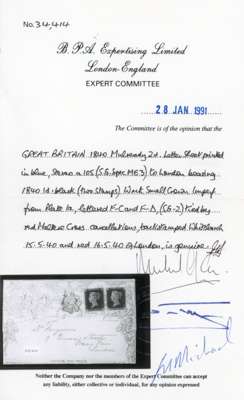 No. 34,414
B. P. A. Expertising Limited
London-England
EXPERT COMMITTEE
28 JAN 1991
The Committee is of the opinion that the
GREAT BRITAIN 1840 Mulready 2d. Letter Sheet printed
in blue, Stereo a 105 (S.G. Spec ME3) to London bearing
1840 1d. black (two stamps) Wmk Small Crown Imperf
from Plate 1a, lettered K-C and K-D, (SG-2) tied by
red Maltese Cross cancellations, backstamped Whitchurch
15.5.40 and red 16.5.40 of London, is genuine
Neither the Company nor the members of the Expert Committee can accept
any liability, either collective or individual, for any opinion expressed